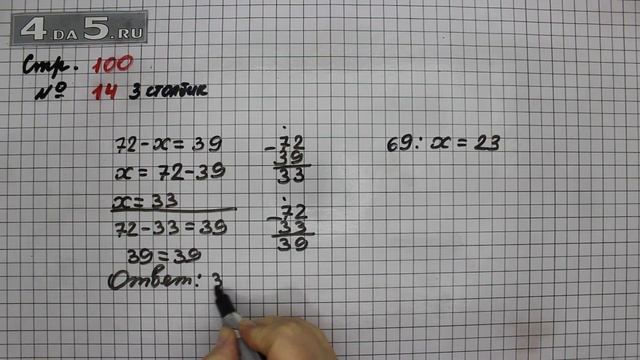 4DA5.RU
Стр. 100
№ 14 3 столбик
72-x=39
x=72-39
x=33
72-33=39
39=39
Ответ: 3
-72
39
33
-72
33
39
69:x=23